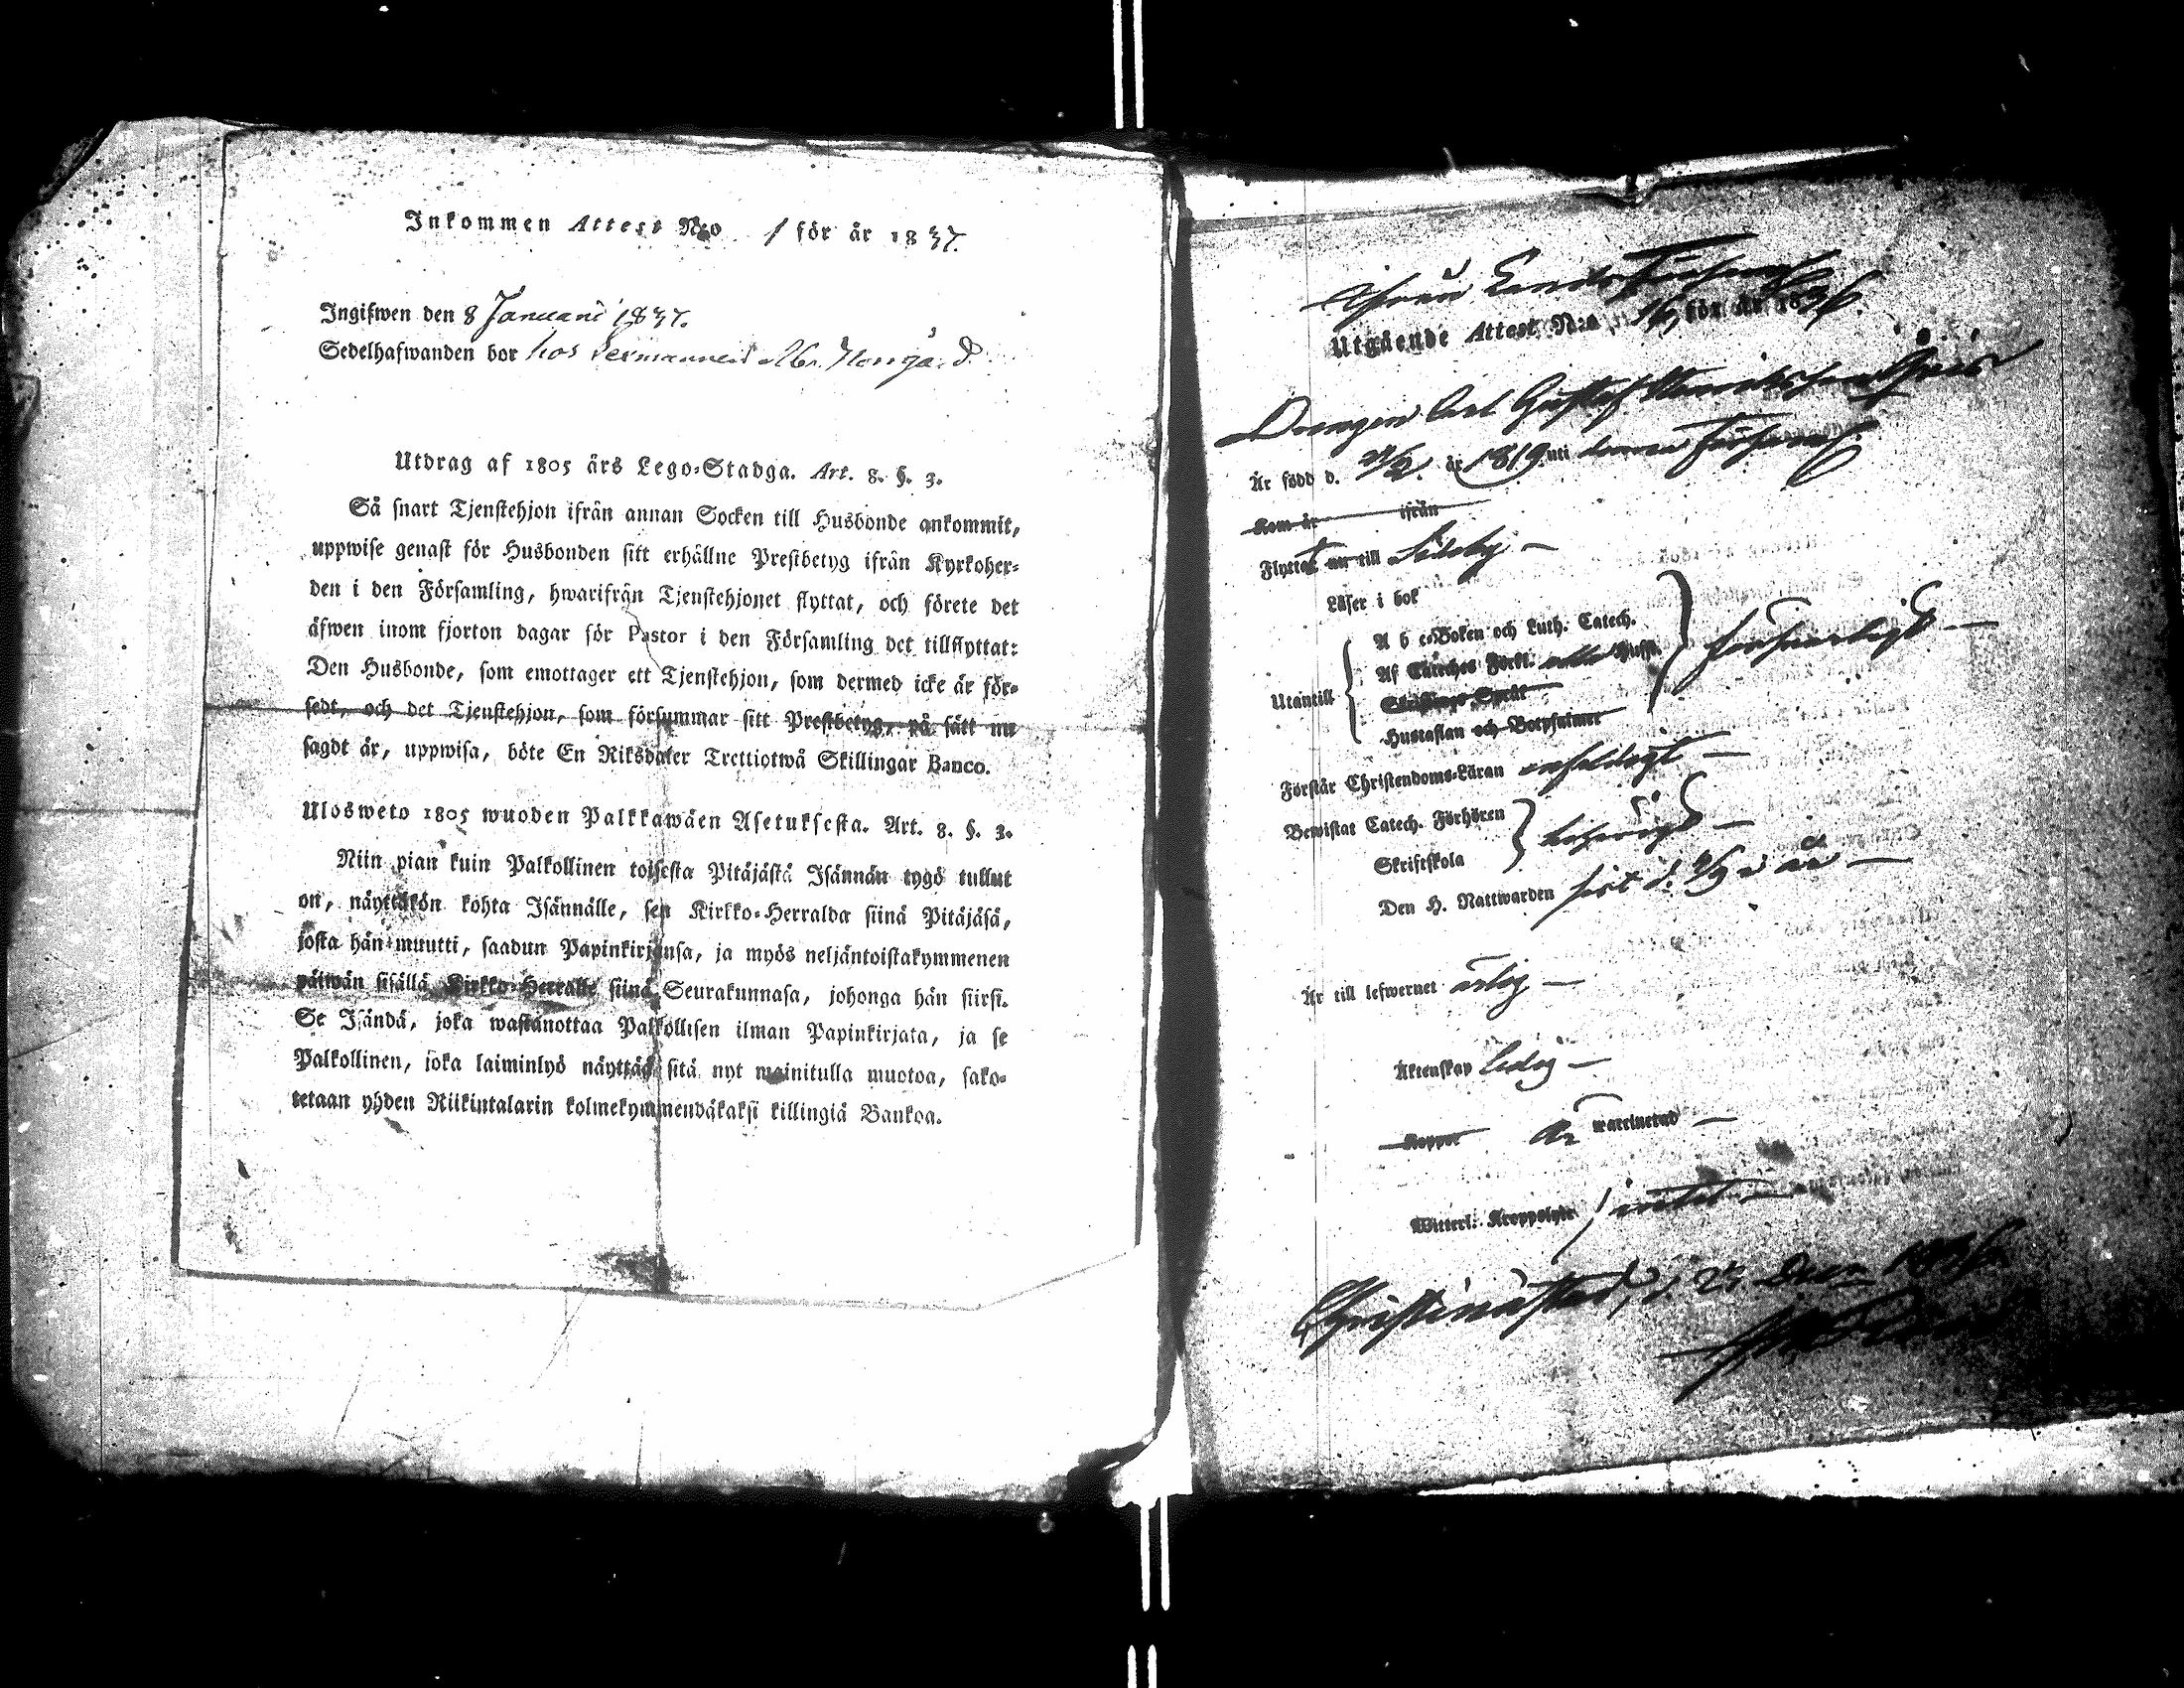 Inkommen Attest N:o 1 för år 1837.
Ingifwen den 8 Januarii 1837.
Sedelhafwanden bor hos
Utdrag af 1805 års Lego-Stadga. Art. 8. §. 3.
Så snart Tjenstehjon ifrån annan Socken till Husbonde ankommit,
uppwise genast för Husbonden sitt erhållne Prestbetyg ifrån Kyrkoher-
den i den Församling, hwarifrån Tjenstehjonet flyttat, och förete det
äfwen inom fjorton dagar för Pastor i den Församling det tillflyttat:
Den Husbonde, som emottager ett Tjenstehjon, som dermed icke är för-
sedt, och det Tjenstehjon, som försummar sitt Prestbetyg, på sätt nu
sagdt är, uppwisa, böte En Riksdaler Trettiotwå Skillingar Banco.
Ulosweto 1805 wuoden Palkkawäen Asetuksesta. Art. 8. §. 3.
Niin pian kuin Palkollinen toisesta Pitäjästä Isännän tygö tullut
on, näyttäkön kohta Isännälle, sen Kirkko-Herralda siinä Pitäjäsä,
josta hän muutti, saadun Papinkirjansa, ja myös neljäntoistakymmenen
päiwän sisällä Kirkko-Herralle siinä Seurakunnasa, johonga hän siirsi.
Se Isändä, joka wastanottaa Palkollisen ilman Papinkirjata, ja se
Palkollinen, joka laiminlyö näyttää sitä nyt mainitulla muotoa, sako-
tetaan yhden Riikintalarin kolmekymmendäkaksi killingiä Bankoa.
Ifrån Lands Församl.
Utgående Attest N:o 16, för år 1836.
Drengen Carl Gustaf
Är född d. år 1819 uti denna Församl.
Kom år ifrån
Flyttat nu till Sideby
Läser i bok
Utantill
A b c-Boken och Luth. Catech.
Af Cateches Förkl.
Skriftens Språk
Hustaflan och Botpsalmer
försvarligt
Förstår Christendoms-Läran enfaldigt
Bewistat Catech. Förhören
Skriftskola
behörigt
Den H. Nattwarden sist d. i år
Är till lefwernet ärlig
Äktenskap ledig
Koppor Är vaccinerad
Witterl. Kroppslyte intet
Christinæstad, d. Decem 1836